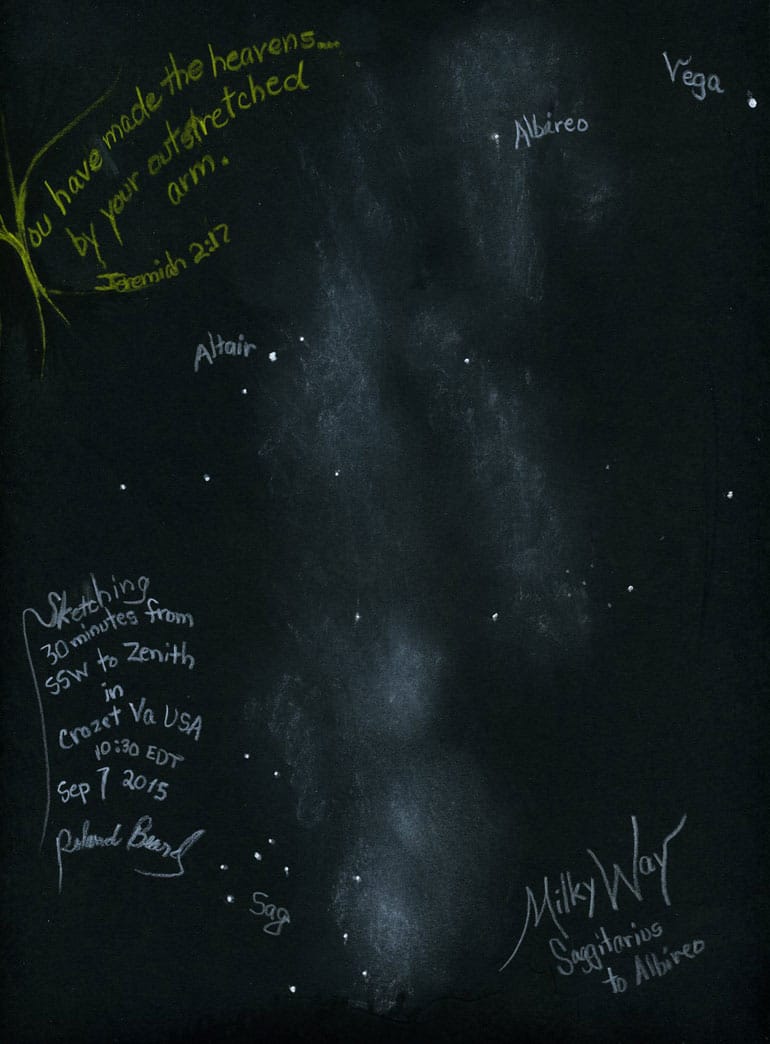 You have made the heavens...
by your outstretched
arm.
Jeremiah 2:17
Vega
Albireo
Altair
Sketching
30 minutes from
SSW to Zenith
in
Crozet Va USA
10:30 EDT
Sep 7 2015
Roland Beard
Sag
Milky Way
Saggitarius
to Albireo